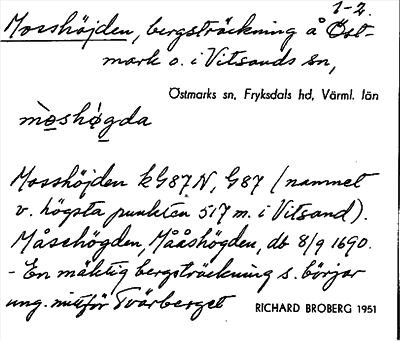 1-2.
Mosshöjden, bergsträckning å Öst-
mark o. i Vitsands sn,
Östmarks sn, Fryksdals hd, Värml. län
mòshø̀gda
Mosshöjden kG87N, G87 (namnet
v. högsta punkten 517 m. i Vitsand).
Måsehögden, Mååshögden, db 8/9 1690.
- En mäktig bergsträckning s. börjar
ung. mittför Tvärberget RICHARD BROBERG 1951